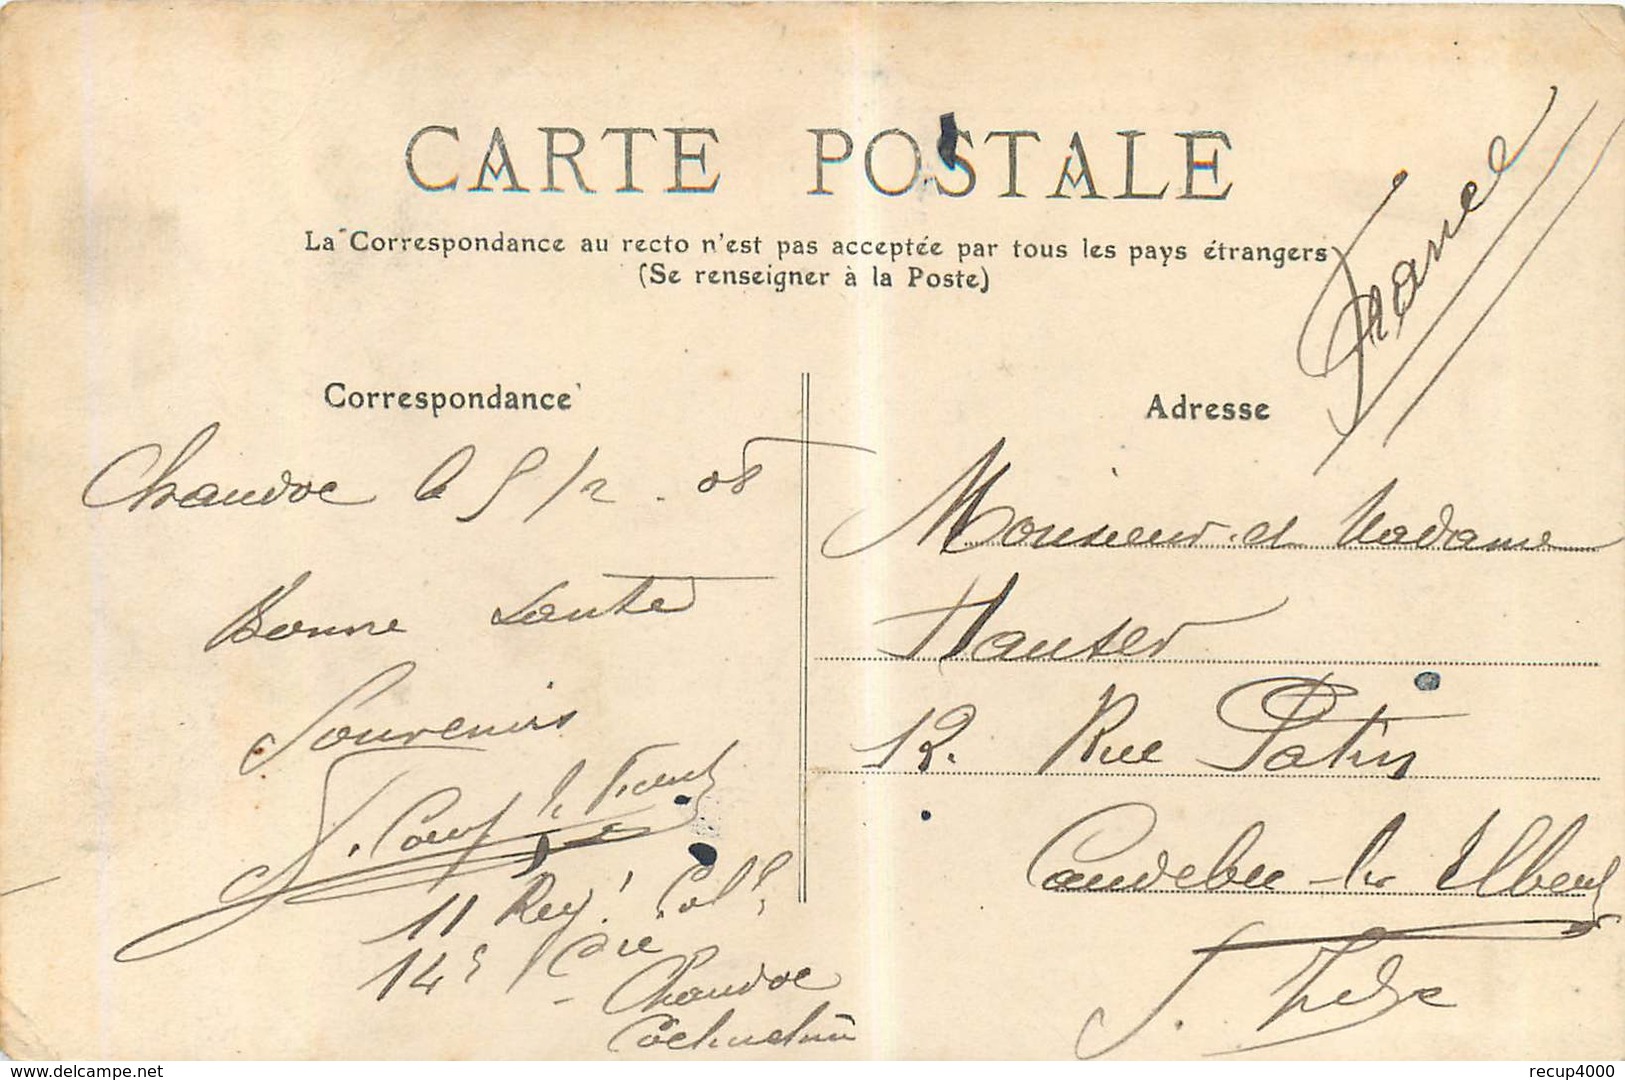 CARTE POSTALE
La Correspondance au recto n'est pas acceptée par tous les pays étrangers
(Se renseigner à la Poste)
France
Correspondance
Chaudoc le 5/2.08
Bonne Santé
Souvenirs
11 Reg! Col
14e Cie
Chaudoc
Cochinchine
Adresse
Monsieur et Madame
Hauser
12. Rue Patin
Caudebec-les-Elbeuf
S. Infre
delcampe.net
recup4000